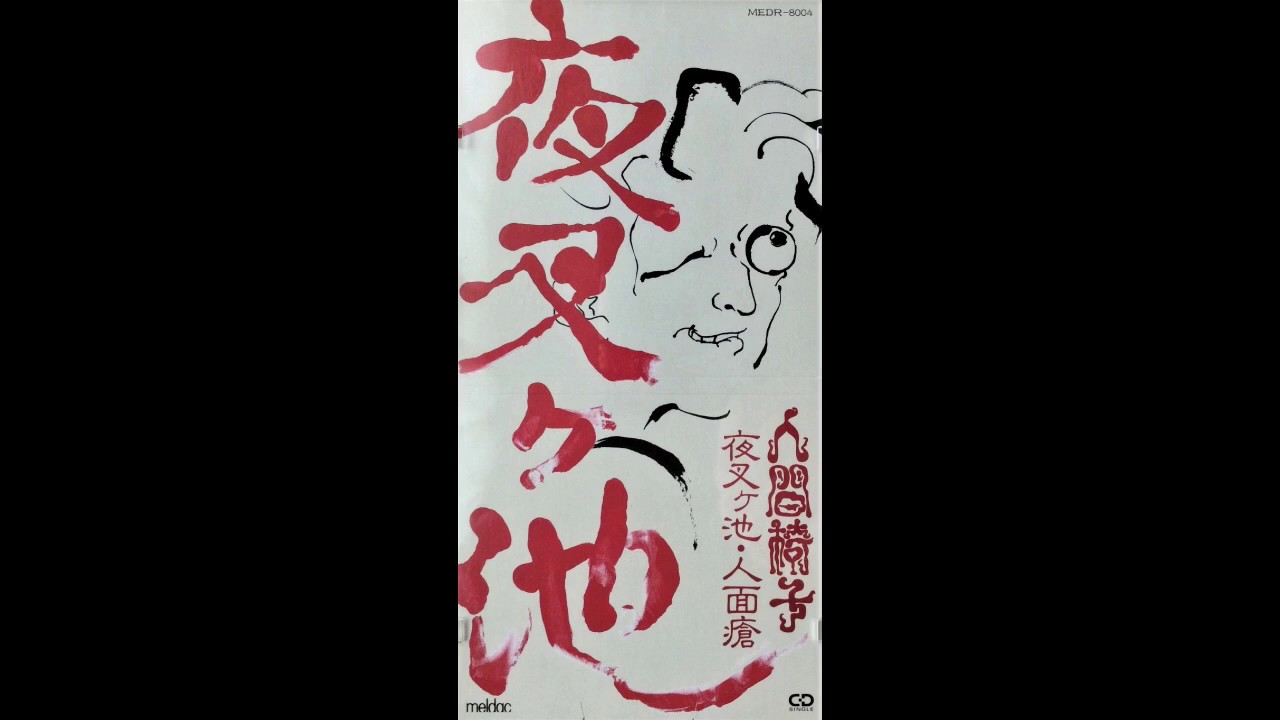 MEDR-8004
夜叉ケ池
人間椅子
夜叉ケ池・人面瘡
meldac
CD
SINGLE